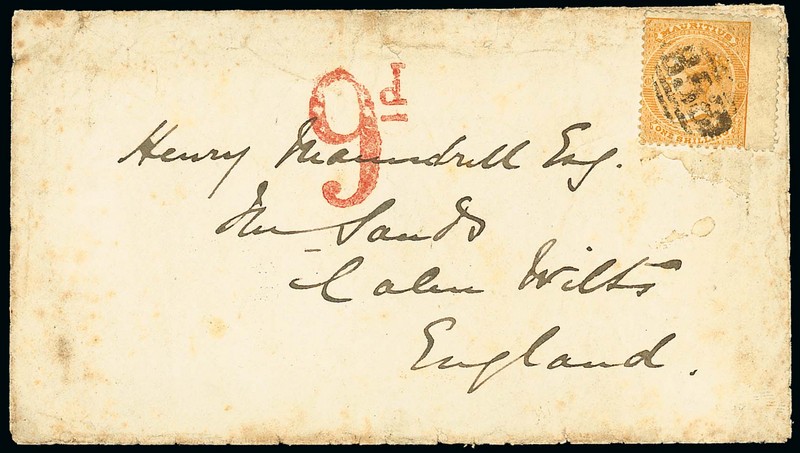 MAURITIUS
ONE SHILLING
9d
Henry Maundrell Esq.
The Sands
Calne Wilts
England.